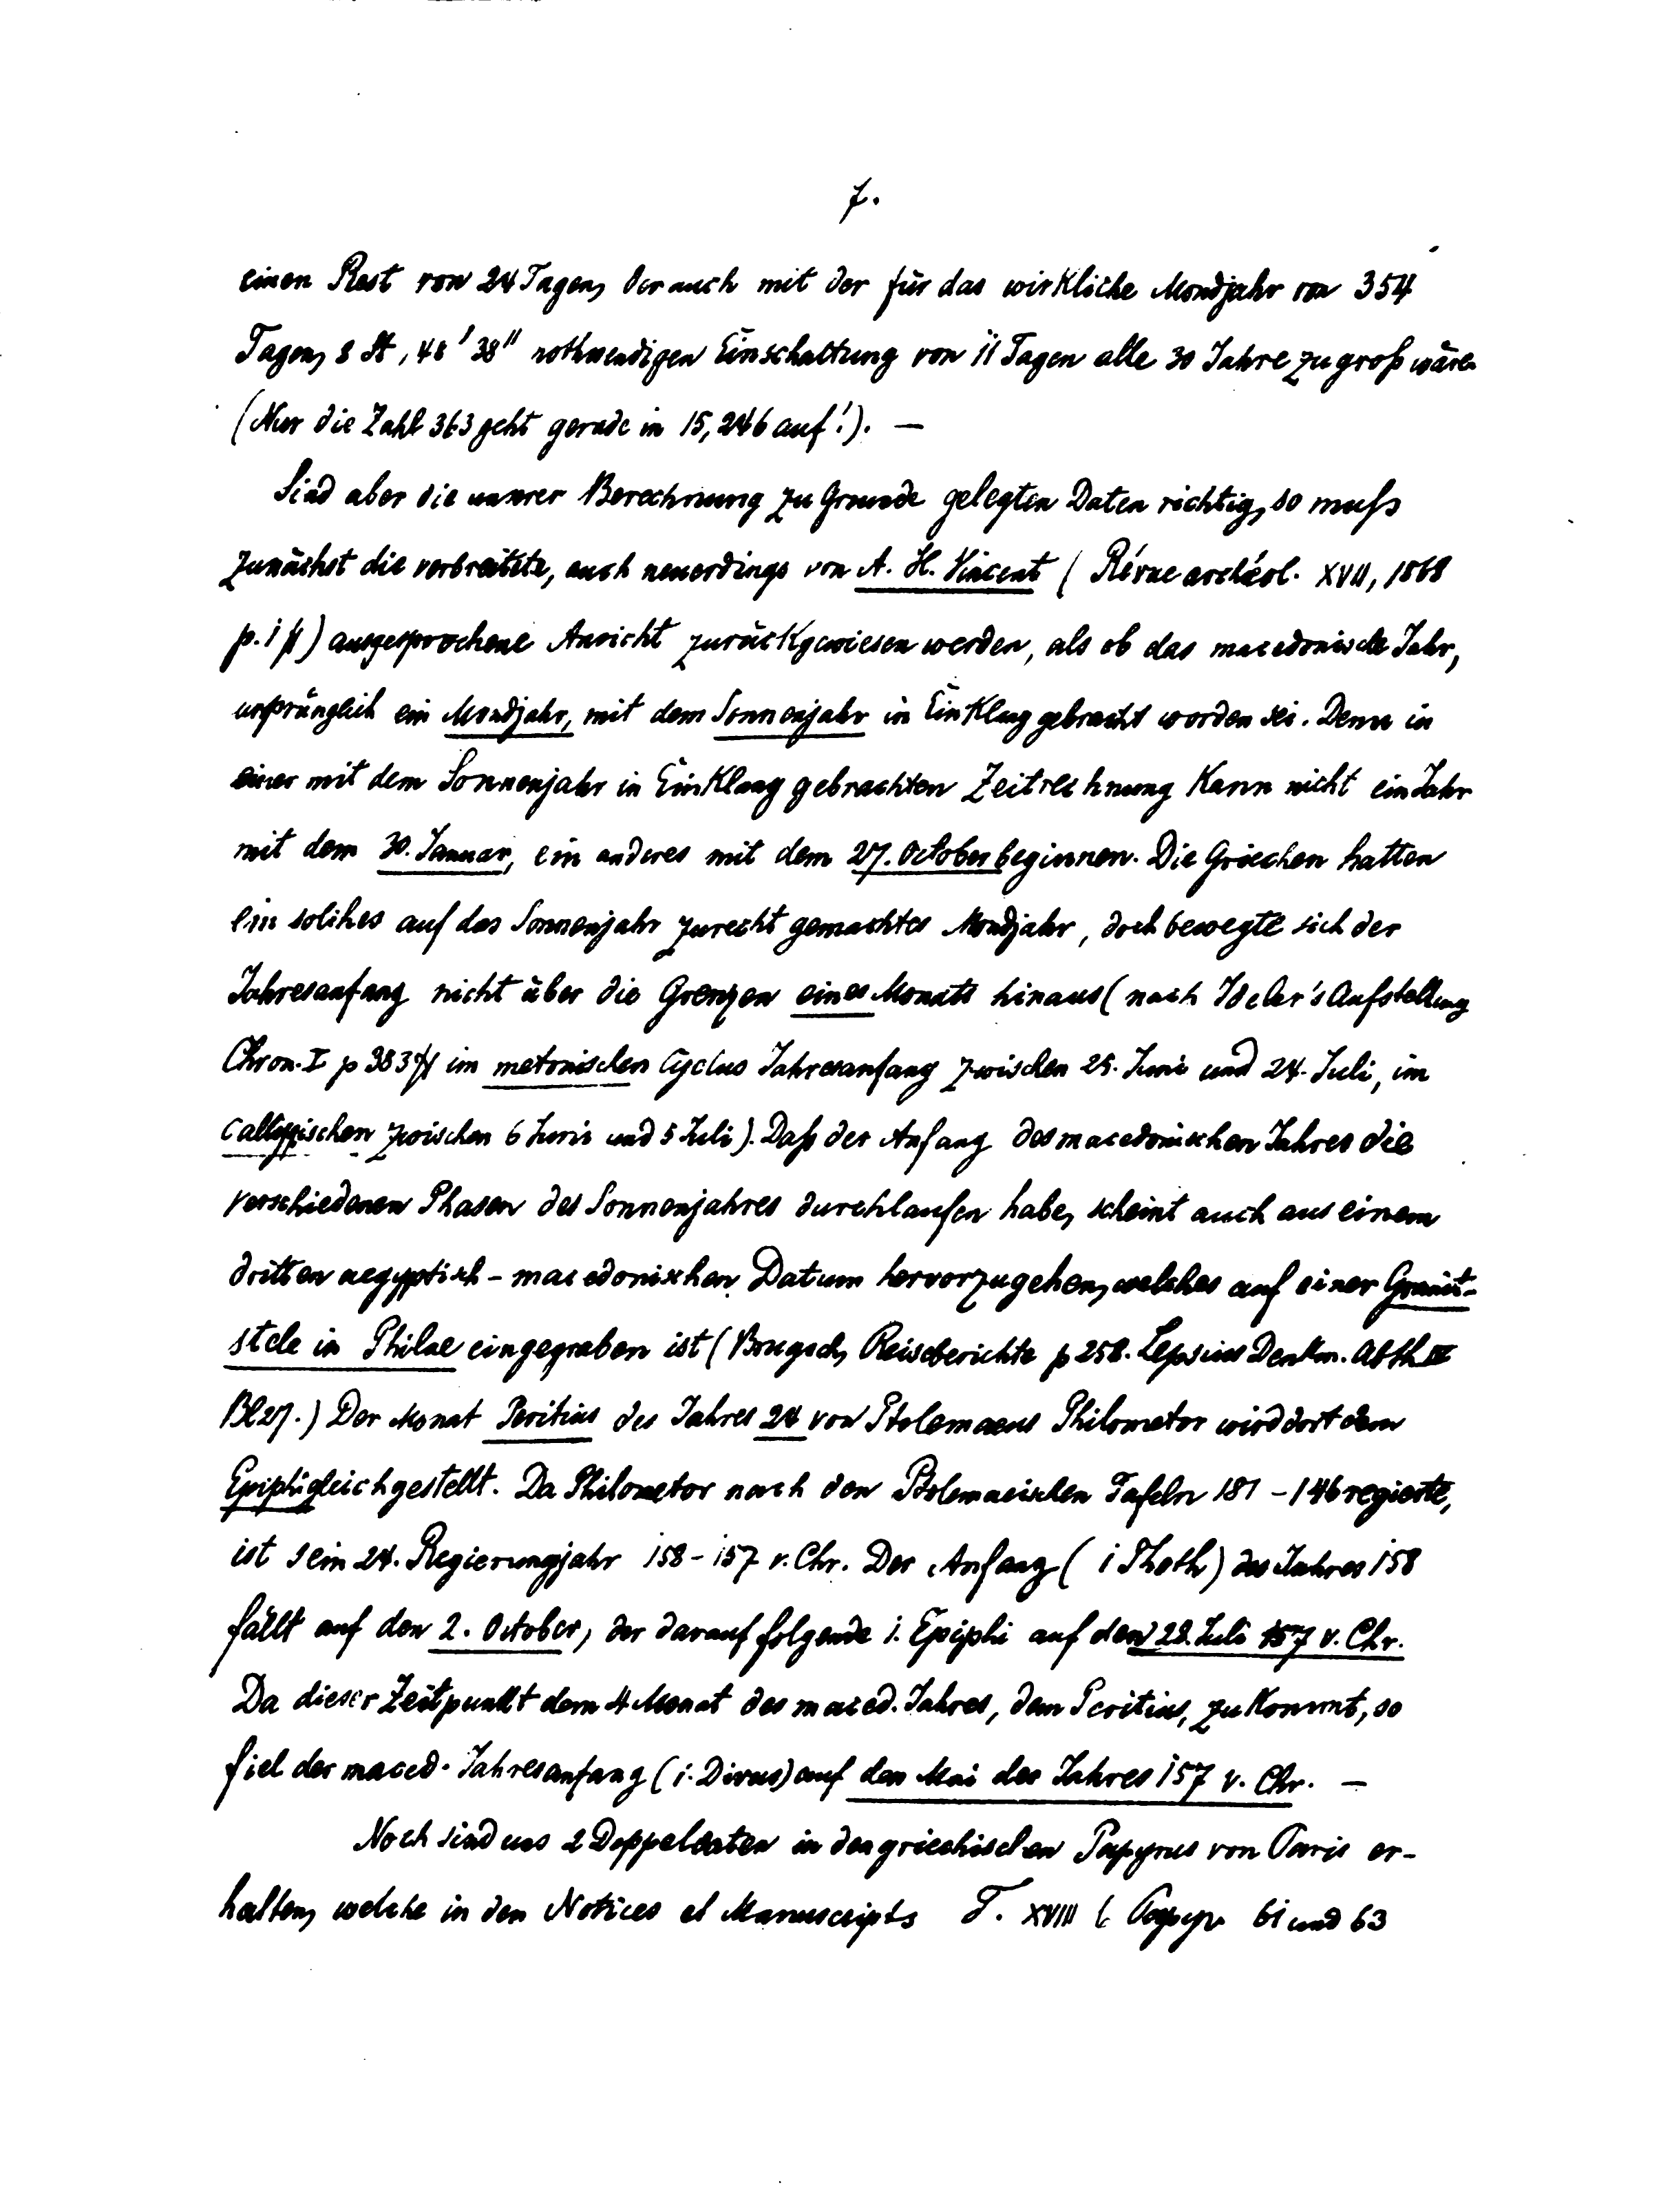 7.
einen Rest von 24 Tagen, der auch mit der für das wirkliche Mondjahr von 354
Tagen, 8 St, 48' 38" nothwendigen Einschaltung von 11 Tagen alle 30 Jahre zu groß wäre.
(Nur die Zahl 363 geht gerade in 15,246 auf!). —
Sind aber die unsrer Berechnung zu Grunde gelegten Daten richtig, so muß
zunächst die verbreitete, auch neuerdings von A. H. Vincent (Révue archéol. XVII, 1868
p. 1 ff) ausgesprochene Ansicht zurückgewiesen werden, als ob das macedonische Jahr,
ursprünglich ein Mondjahr, mit dem Sonnenjahr in Einklang gebracht worden sei. Denn in
einer mit dem Sonnenjahr in Einklang gebrachten Zeitrechnung kann nicht ein Jahr
mit dem 30. Januar, ein anderes mit dem 27. October beginnen. Die Griechen hatten
ein solches auf das Sonnenjahr zurecht gemachtes Mondjahr, doch bewegte sich der
Jahresanfang nicht über die Grenzen eines Monats hinaus (nach Ideler's Aufstellung
Chron. I p 383 ff im metonischen Cyclus Jahresanfang zwischen 25. Juni und 24. Juli, im
callippischen zwischen 6 Juni und 5 Juli). Daß der Anfang des macedonischen Jahres die
verschiedenen Phasen des Sonnenjahres durchlaufen habe, scheint auch aus einem
dritten aegyptisch-macedonischen Datum hervorzugehen, welches auf einer Granit-
stele in Philae eingegraben ist (Brugsch, Reiseberichte p 258. Lepsius Denkm. Abth IV
Bl 27.) Der Monat Peritius des Jahres 24 von Ptolemaeus Philometor wird dort dem
Epiphi gleichgestellt. Da Philometor nach den Ptolemaeischen Tafeln 181 – 146 regierte,
ist sein 24. Regierungsjahr 158 – 157 v. Chr. Der Anfang (1 Thoth) des Jahres 158
fällt auf den 2. October, der darauf folgende 1. Epiphi auf den 29. Juli 157 v. Chr.
Da dieser Zeitpunkt dem 4 Monat des maced. Jahres, dem Peritius, zukommt, so
fiel der maced. Jahresanfang (1. Dirus) auf den Mai des Jahres 157 v. Chr. —
Noch sind uns 2 Doppeldaten in den griechischen Papyrus von Paris er-
halten, welche in den Notices et Manuscripts T. XVIII Papyr 61 und 63